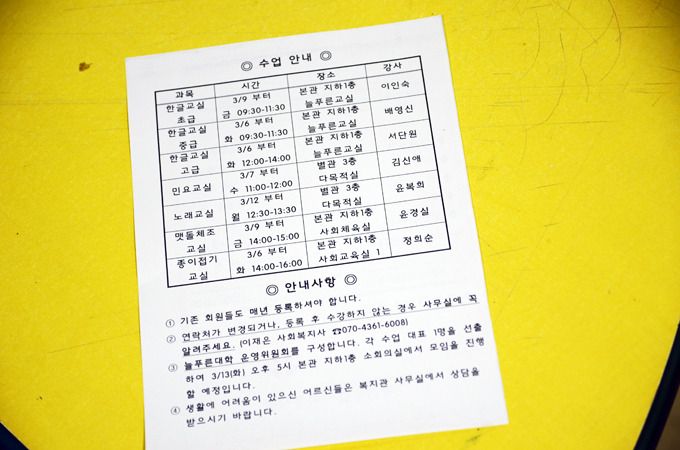 ◎ 수업 안내 ◎
과목 시간 장소 강사
한글교실 초급 3/9 부터 금 09:30-11:30 본관 지하1층 늘푸른교실 이인숙
한글교실 중급 3/6 부터 화 09:30-11:30 본관 지하1층 늘푸른교실 배영신
한글교실 고급 3/6 부터 화 12:00-14:00 본관 지하1층 늘푸른교실 서단원
민요교실 3/7 부터 수 11:00-12:00 별관 3층 다목적실 김신애
노래교실 3/12 부터 월 12:30-13:30 별관 3층 다목적실 윤복희
맷돌체조 교실 3/9 부터 금 14:00-15:00 본관 지하1층 사회체육실 윤경실
종이접기 교실 3/6 부터 화 14:00-16:00 본관 지하1층 사회교육실 1 정희순
◎ 안내사항 ◎
① 기존 회원들도 매년 등록하셔야 합니다.
② 연락처가 변경되거나, 등록 후 수강하지 않는 경우 사무실에 꼭
알려주세요. (이재은 사회복지사 ☎070-4361-6008)
③ 늘푸른대학 운영위원회를 구성합니다. 각 수업 대표 1명을 선출
하여 3/13(화) 오후 5시 본관 지하1층 소회의실에서 모임을 진행
할 예정입니다.
④ 생활에 어려움이 있으신 어르신들은 복지관 사무실에서 상담을
받으시기 바랍니다.